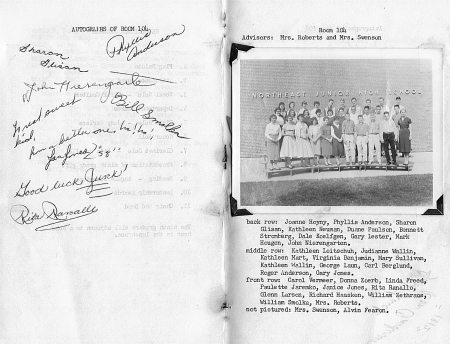 AUTOGRAPHS OF ROOM 104
Sharon
Glisan
Phyllis
Anderson
John Nierengarten
Bill Smolke
To a sweet
kid,
"58"
Good luck Junk
Rita Ranallo
Room 104
Advisors: Mrs. Roberts and Mrs. Swenson
NORTHEAST JUNIOR HIGH SCHOOL
back row: Joanne Hoyny, Phyllis Anderson, Sharon
Glisan, Kathleen Neuman, Duane Paulson, Bennett
Stromberg, Dale Koelfgen, Gary Lester, Mark
Hougon, John Nierengarten.
middle row: Kathleen Leitschuh, Judianne Wallin,
Kathleen Mart, Virginia Benjamin, Mary Sullivan,
Kathleen Wallin, George Laun, Carl Berglund,
Roger Anderson, Gary Jones.
front row: Carol Vermeer, Donna Zoerb, Linda Freed,
Paulette Jaremko, Janice Jones, Rita Ranallo,
Glenn Larson, Richard Hauskon, William Kethraus,
William Smolke, Mrs. Roberts.
not pictured: Mrs. Swenson, Alvin Fearon.